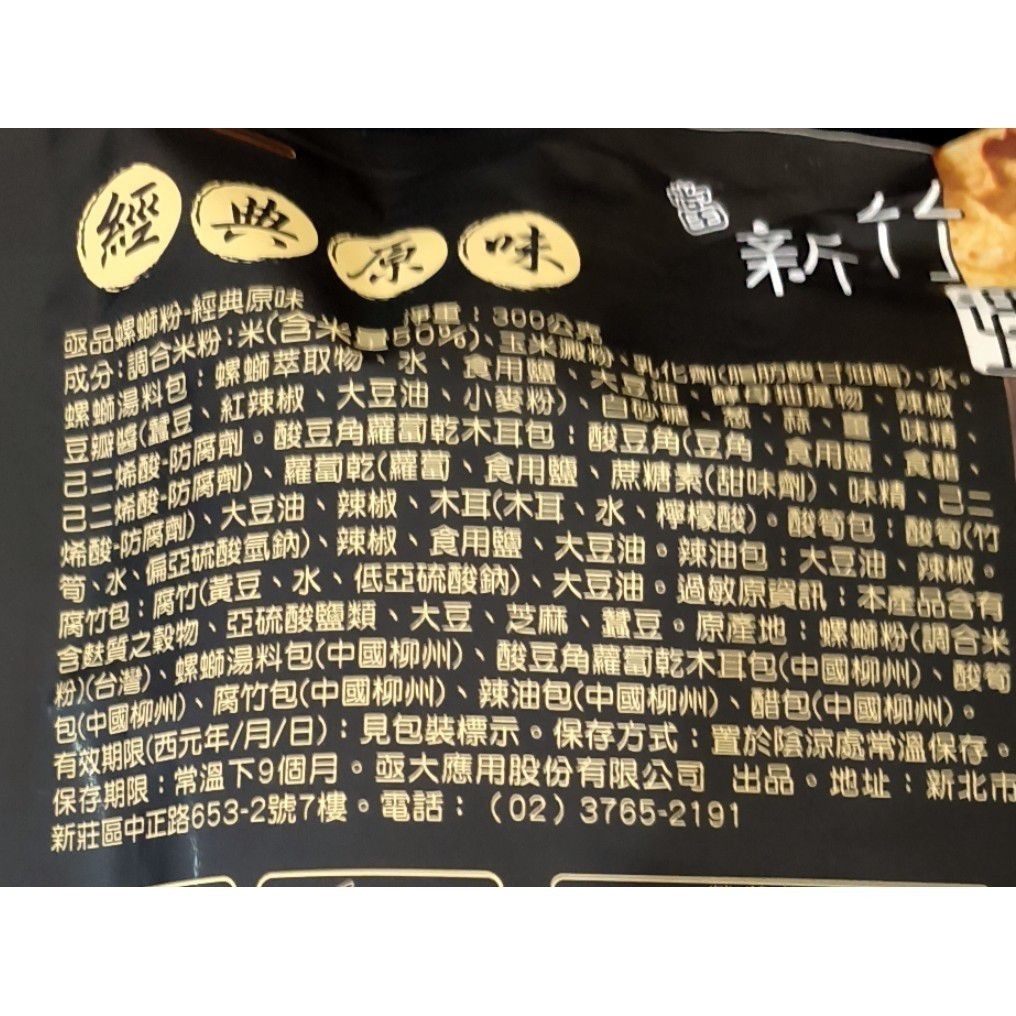 經典原味
新竹
亟品螺螄粉-經典原味 淨重：300公克
成分：調合米粉：米(含米量80%)、玉米澱粉、乳化劑(脂肪酸甘油酯)、水。
螺螄湯料包：螺螄萃取物、水、食用鹽、大豆油、酵母抽提物、辣椒、
豆瓣醬(蠶豆、紅辣椒、大豆油、小麥粉)、白砂糖、蔥、蒜、薑、味精、
己二烯酸-防腐劑。酸豆角蘿蔔乾木耳包：酸豆角(豆角、食用鹽、食醋、
己二烯酸-防腐劑)、蘿蔔乾(蘿蔔、食用鹽、蔗糖素(甜味劑)、味精、己二
烯酸-防腐劑)、大豆油、辣椒、木耳(木耳、水、檸檬酸)。酸筍包：酸筍(竹
筍、水、偏亞硫酸氫鈉)、辣椒、食用鹽、大豆油。辣油包：大豆油、辣椒。
腐竹包：腐竹(黃豆、水、低亞硫酸鈉)、大豆油。過敏原資訊：本產品含有
含麩質之穀物、亞硫酸鹽類、大豆、芝麻、蠶豆。原產地：螺螄粉(調合米
粉)(台灣)、螺螄湯料包(中國柳州)、酸豆角蘿蔔乾木耳包(中國柳州)、酸筍
包(中國柳州)、腐竹包(中國柳州)、辣油包(中國柳州)、醋包(中國柳州)。
有效期限(西元年/月/日)：見包裝標示。保存方式：置於陰涼處常溫保存。
保存期限：常溫下9個月。亟大應用股份有限公司 出品。地址：新北市
新莊區中正路653-2號7樓。電話：（02）3765-2191